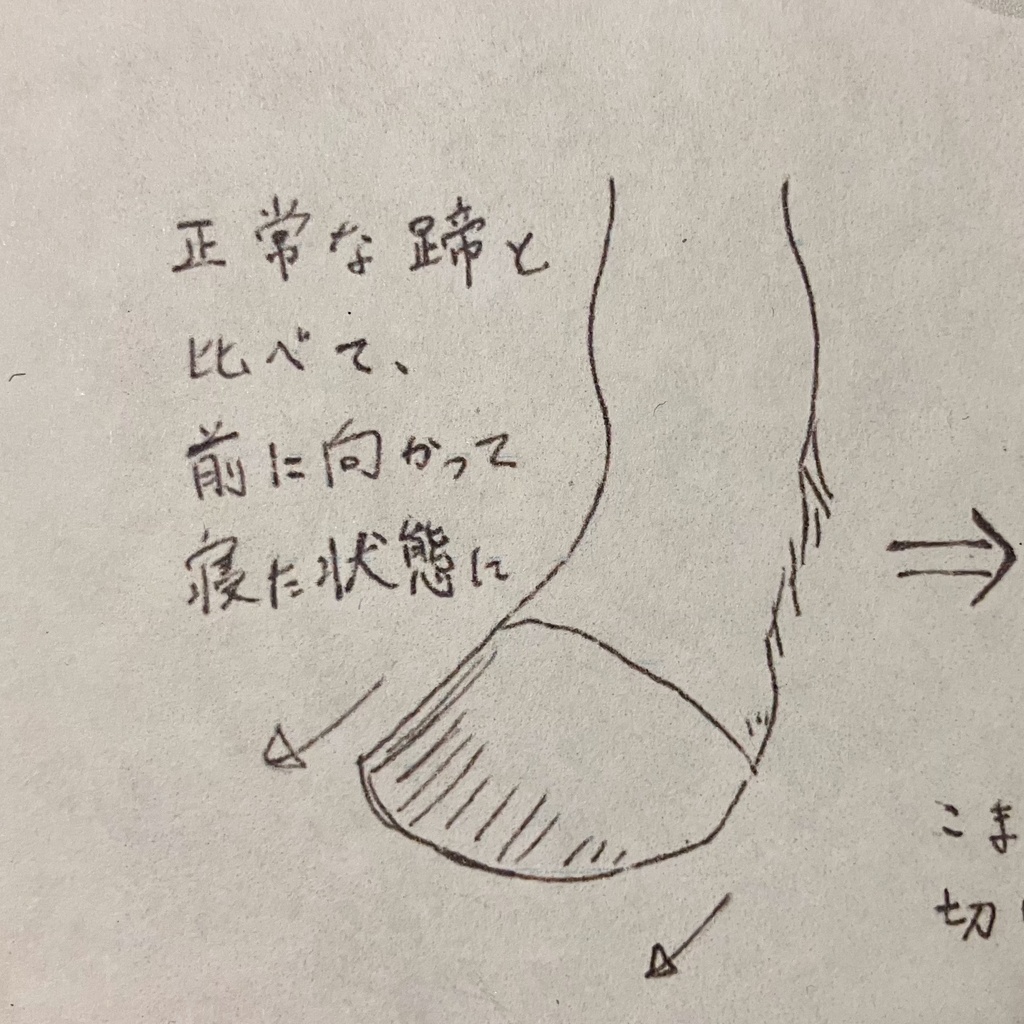 正常な蹄と
比べて、
前に向かって
寝た状態に
こま
切